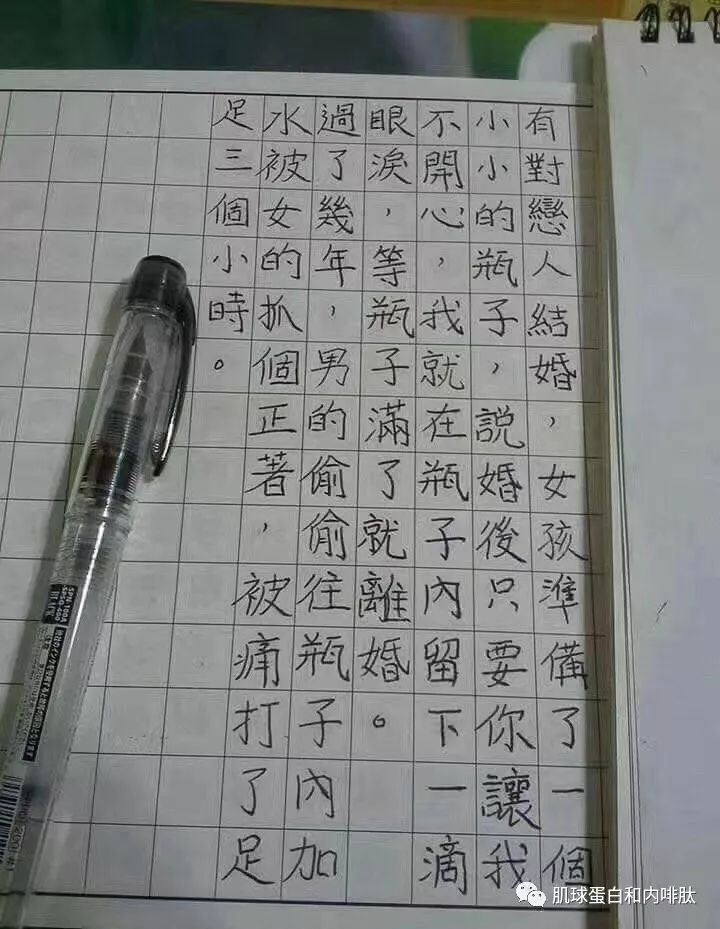 有對戀人結婚，女孩準備了一個
小小的瓶子，說婚後只要你讓我
不開心，我就在瓶子內留下一滴
眼淚，等瓶子滿了就離婚。
過了幾年，男的偷偷往瓶子內加
水被女的抓個正著，被痛打了足
足三個小時。
肌球蛋白和内啡肽